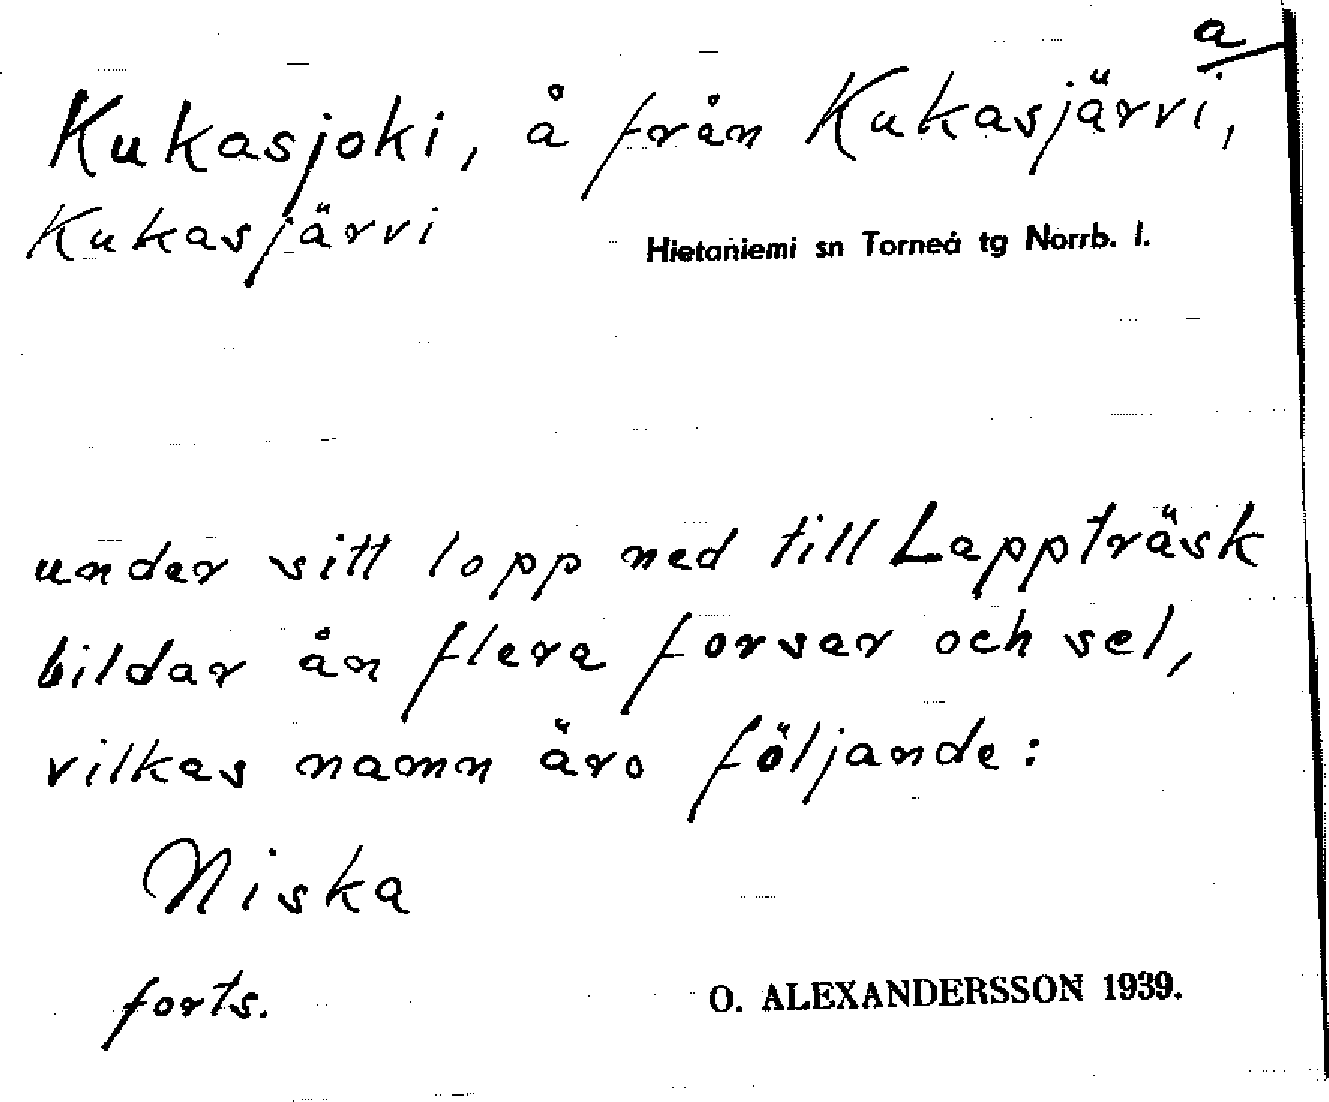 a
Kukasjoki, å från Kukasjärvi,
Kukasjärvi Hietaniemi sn Torneå tg Norrb. l.
under sitt lopp ned till Lappträsk
bildar ån flera forsar och sel,
vilkas namn äro följande:
Niska
forts. O. ALEXANDERSSON 1939.